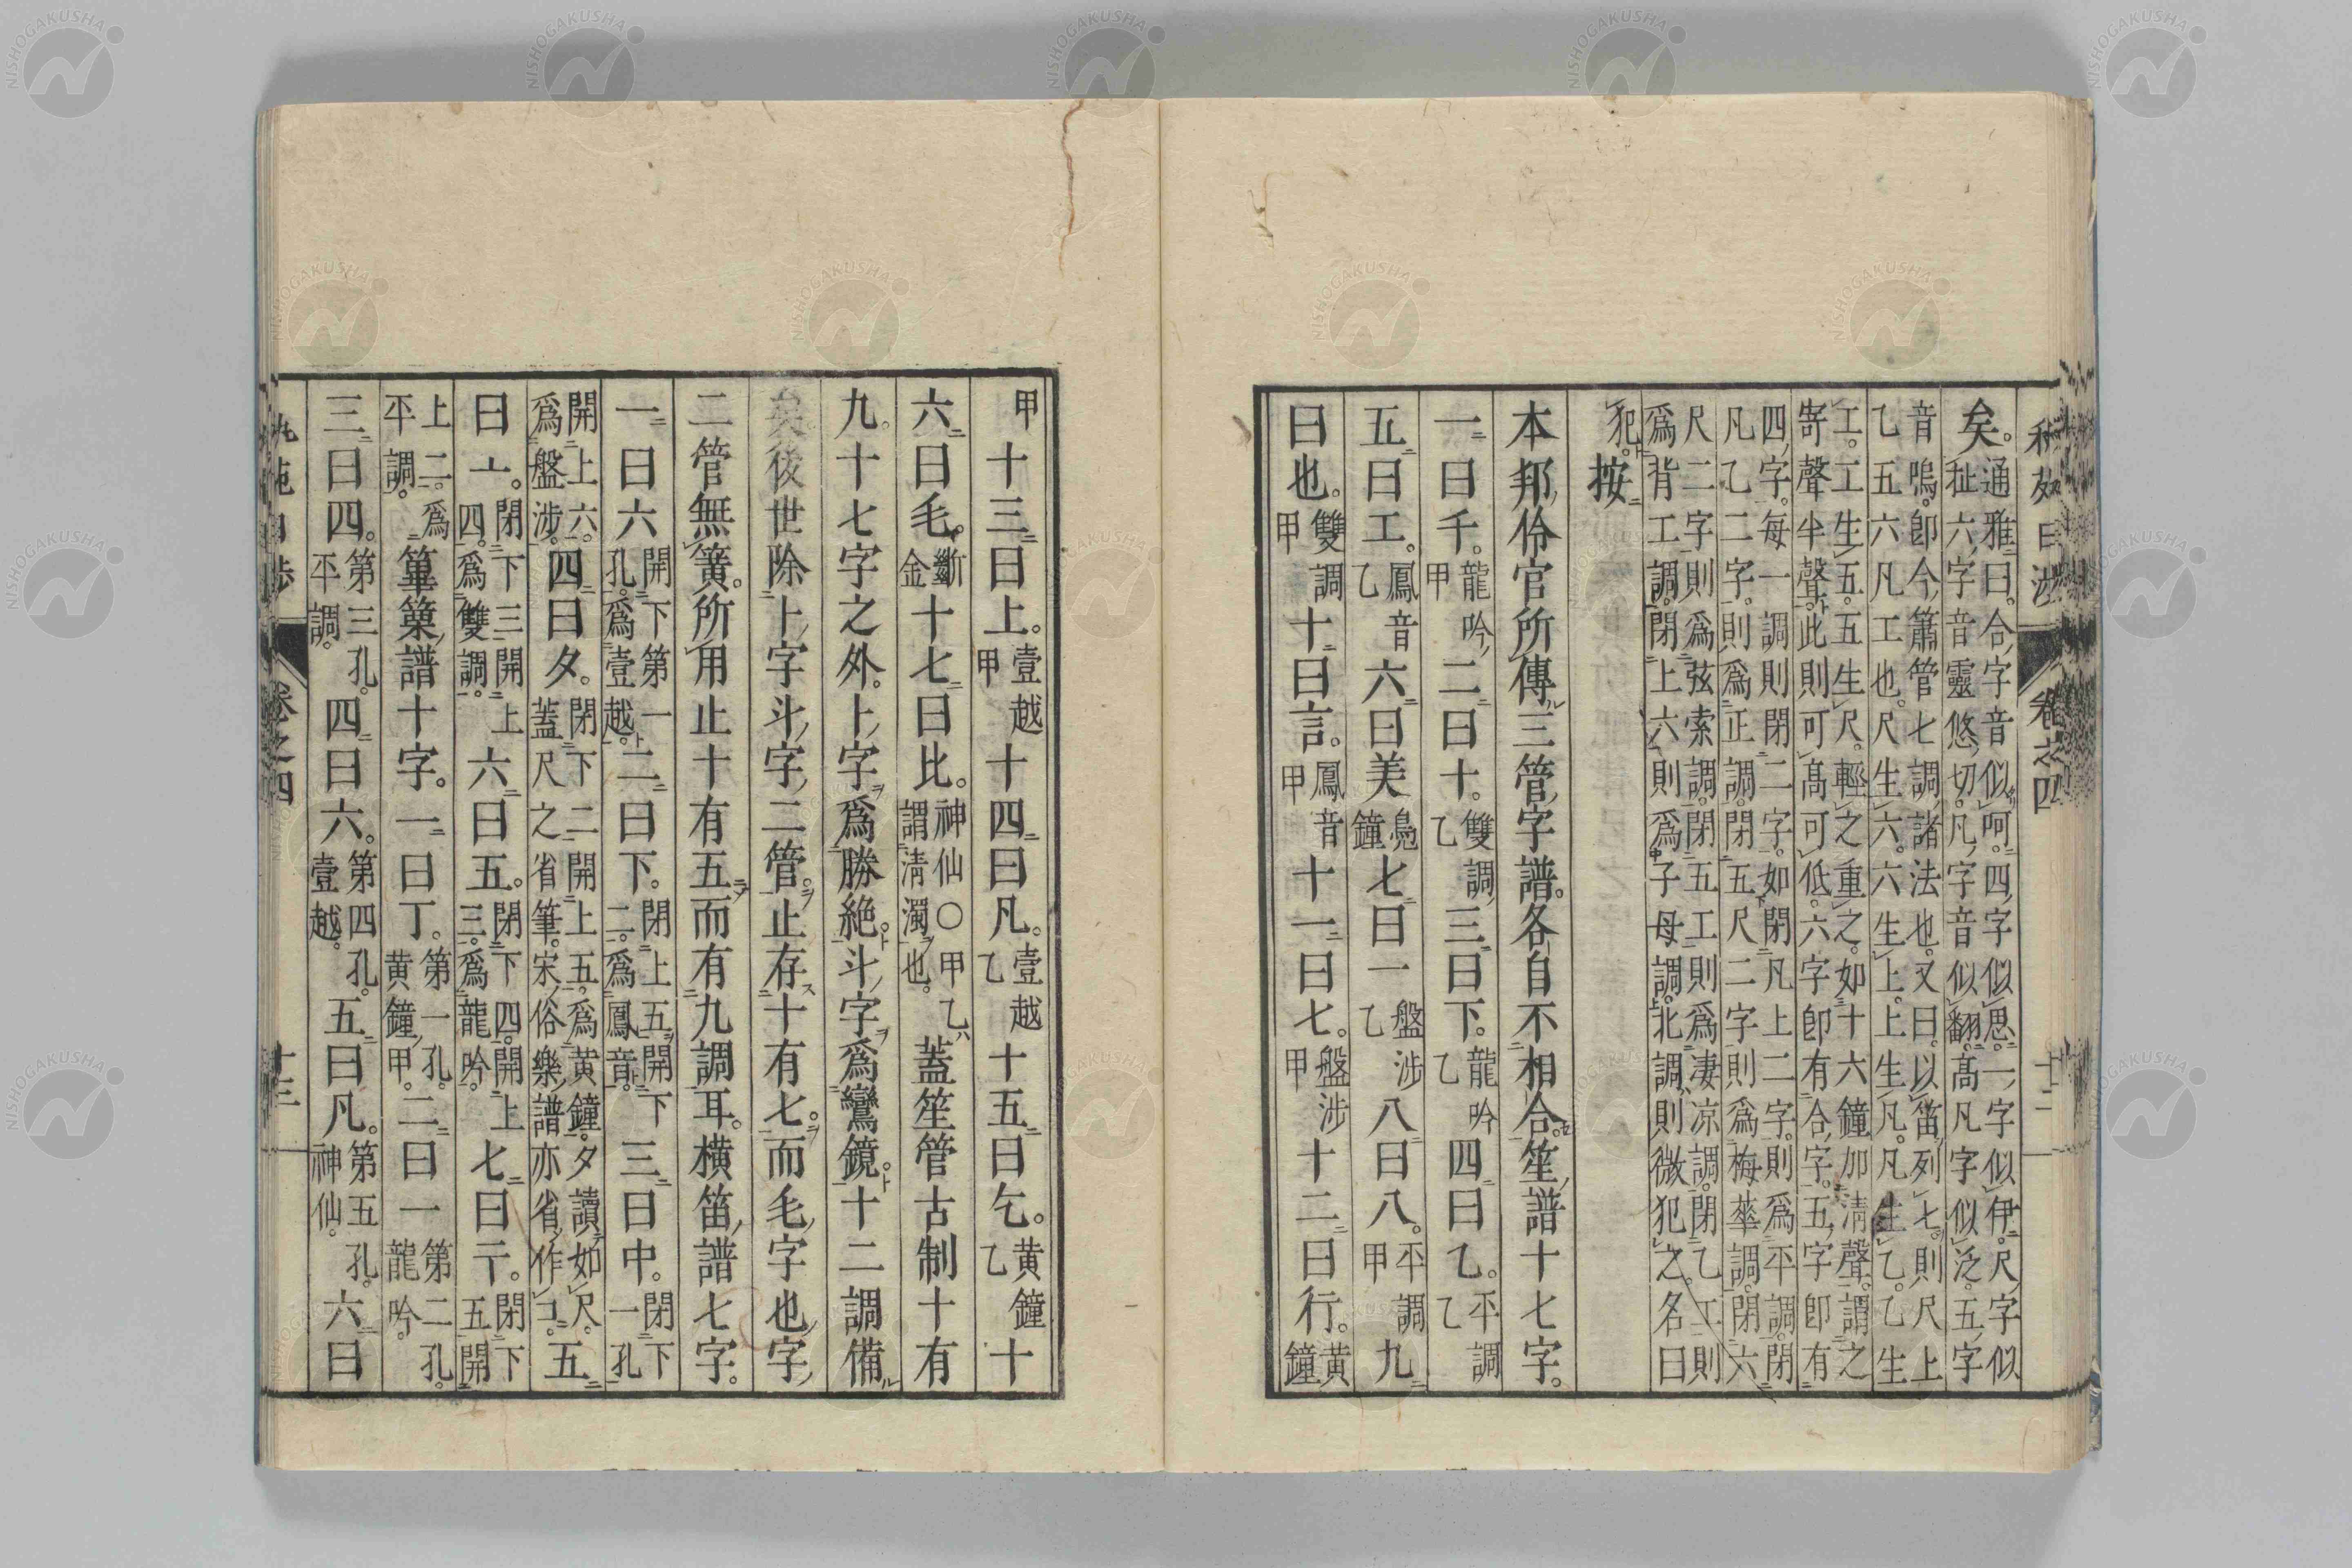 秇苑日渉 卷之四 十二
矣。通雅曰。合字音似呵。四字似思。一字似伊。尺字似
扯六字音靈悠切。凡字音似翻。高凡字似泛。五字
音嗚。卽今簫管七調諸法也。又曰。以笛列七。則尺上
乙五六凡工也。尺生六。六生上。上生凡。凡生乙。乙生
工。工生五。五生尺。輕之重之。如十六鐘加淸聲。謂之
寄聲半聲。此則可高可低。六字卽有合字。五字卽有
四字。每一調則閉二字。如閉凡上二字。則爲平調。閉
凡乙二字。則爲正調。閉五尺二字則爲梅蕐調。閉六
尺二字則爲弦索調。閉五工則爲凄凉調。閉乙工則
爲背工調。閉上六則爲子母調。北調則微犯之。名曰
犯。按
本邦伶官所傳三管字譜。各自不相合。笙譜十七字。
一曰千。龍吟甲二曰十。雙調乙三曰下。龍吟乙四曰乙。平調乙
五曰工。鳳音乙六曰美鳧鐘七曰一盤涉乙八曰八。平調甲九
曰也。雙調甲十曰言。鳳音甲十一曰七。盤涉甲十二曰行。黄鐘
甲十三曰上。壹越甲十四曰凡。壹越乙十五曰乞。黄鐘乙十
六曰毛。斷金十七曰比。神仙〇甲乙謂淸濁也。蓋笙管古制十有
九。十七字之外。⺊字爲勝絶。斗字爲鸞鏡。十二調備
矣。後世除⺊字斗字二管。止存十有七。而毛字也字
二管無簧。所用止十有五而有九調耳。横笛譜七字。
一曰六開下第一孔。爲壹越。二曰下。閉上五開下二。爲鳳音。三曰中。閉下一孔
開上六。爲盤涉。四曰夕。閉下二開上五。爲黄鐘。夕讀如尺。蓋尺之省筆。宋俗樂譜亦省作コ。五
曰㆒。閉下三開上四。爲雙調。六曰五。閉下四。開上三。爲龍吟。七曰亍。閉下五開
上二。爲平調。篳篥譜十字。一曰丁。第一孔。黄鐘甲。二曰一第二孔。龍吟。
三曰四。第三孔。平調。四曰六。第四孔。壹越。五曰凡。第五孔。神仙。六曰
秇苑日渉 卷之四 十三